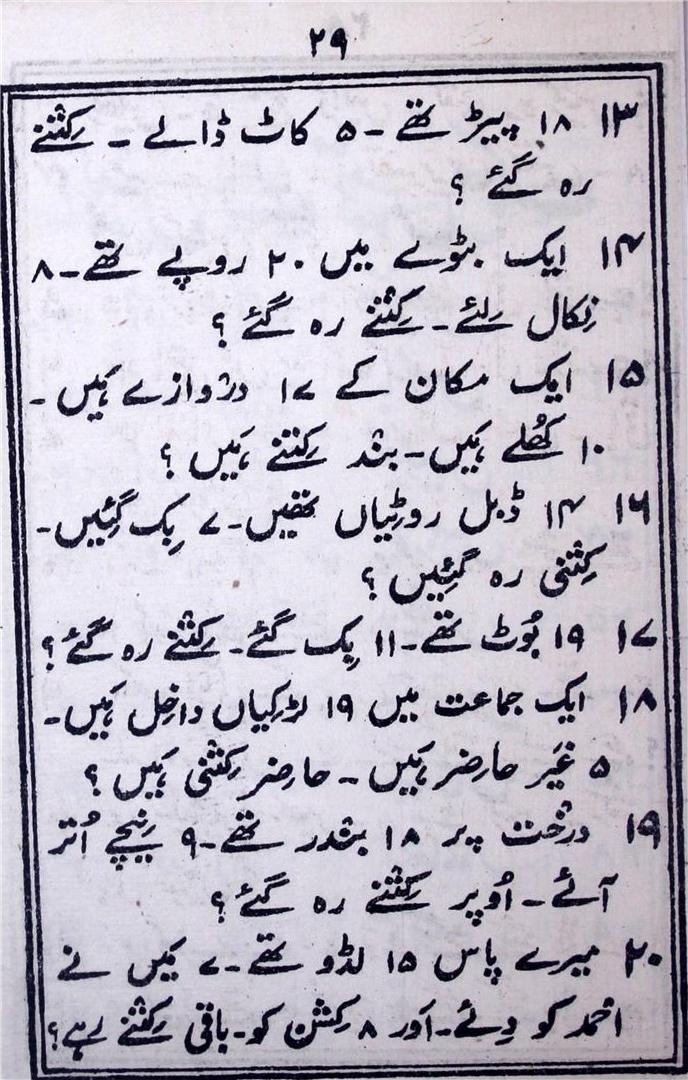 ۲۹
۱۳ ۱۸ پیڑ تھے ۔ ۵ کاٹ ڈالے ۔ کِتنے
رہ گئے ؟
۱۴ ایک بٹوے میں ۲۰ روپے تھے ۔ ۸
نِکال لِئے ۔ کِتنے رہ گئے ؟
۱۵ ایک مکان کے ۱۷ دروازے ہَیں ۔
۱۰ کھُلے ہَیں ۔ بند کِتنے ہَیں ؟
۱۶ ۱۴ ڈبل روٹِیاں تھِیں ۔ ۷ بِک گَئِیں ۔
کِتنی رہ گَئِیں ؟
۱۷ ۱۹ بُوٹ تھے ۔ ۱۱ بِک گئے ۔ کِتنے رہ گئے ؟
۱۸ ایک جماعت میں ۱۹ لڑکِیاں داخِل ہَیں ۔
۵ غَیر حاضِر ہَیں ۔ حاضِر کِتنی ہَیں ؟
۱۹ درخت پر ۱۸ بندر تھے ۔ ۹ نِیچے اُتر
آئے ۔ اُوپر کِتنے رہ گئے ؟
۲۰ میرے پاس ۱۵ لڈو تھے ۔ ۷ مَیں نے
احمد کو دِئے ۔ اَور ۸ کِشن کو ۔ باقی کِتنے رہے ؟